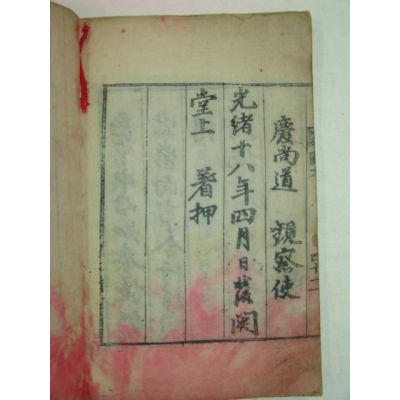 慶尚道 觀察使
光緒十八年四月日發關
堂上 着押